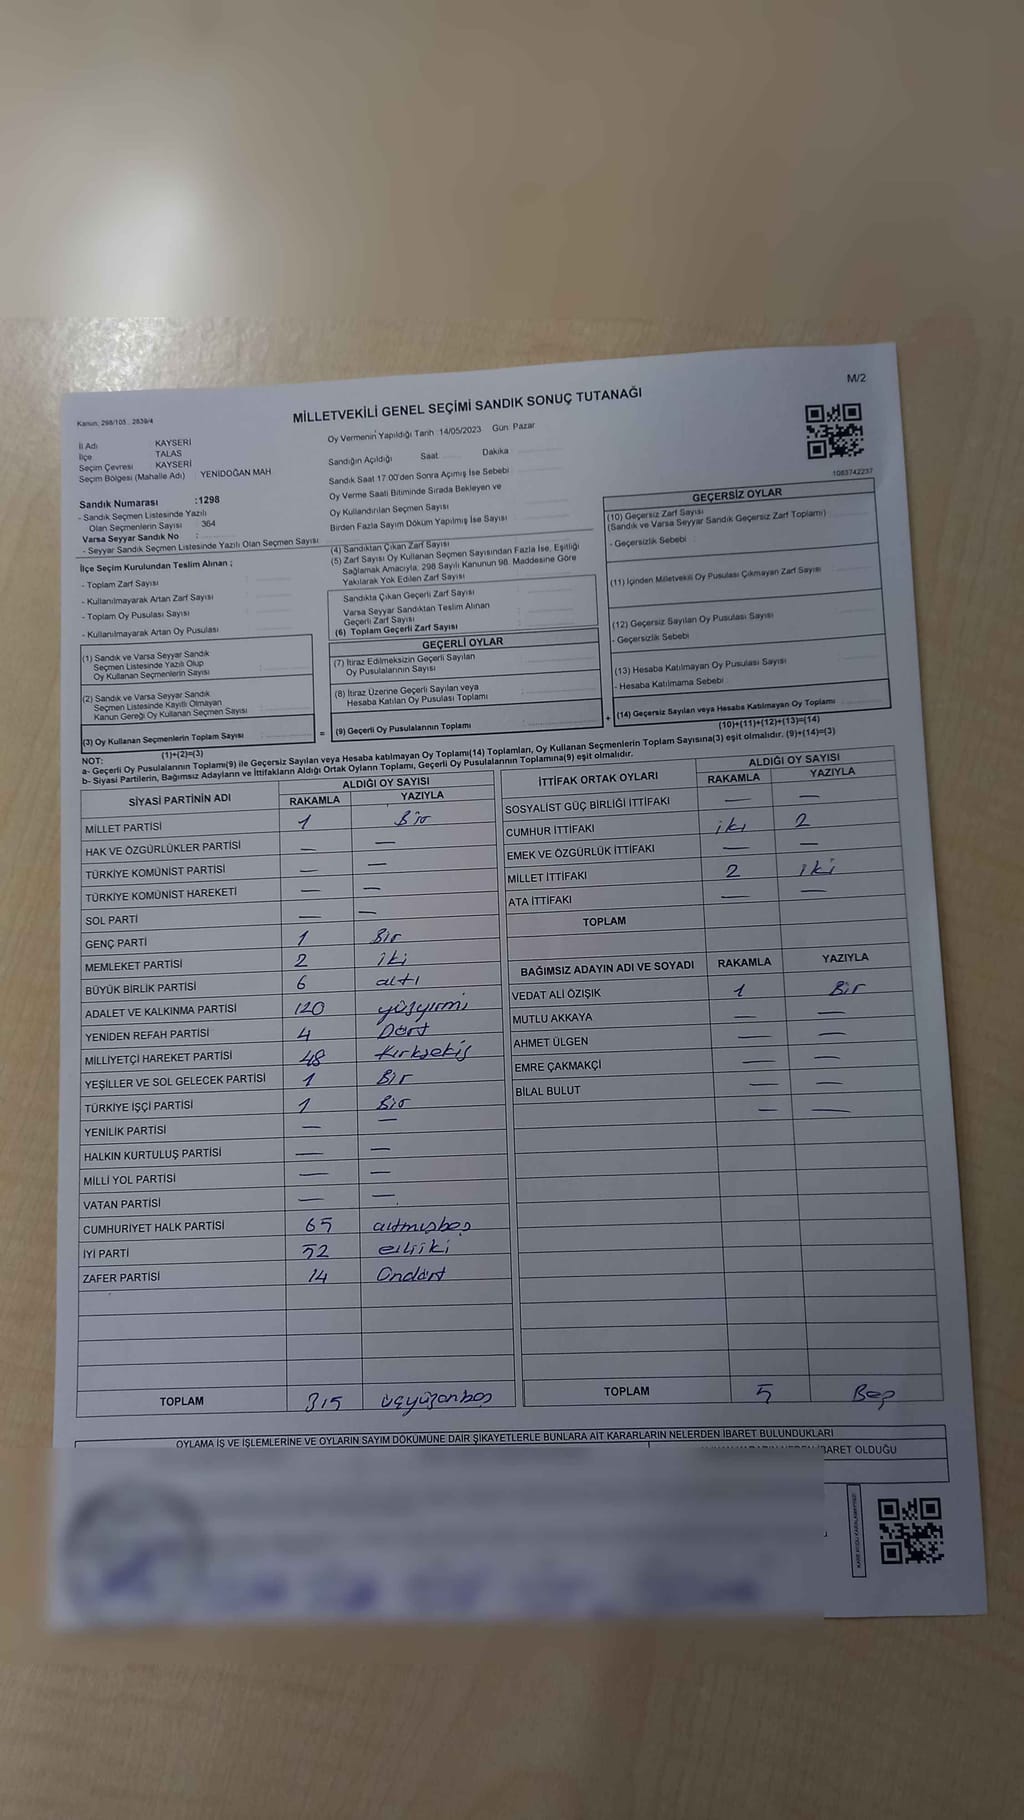 M/2
Kanun: 298/105 2839/4
MİLLETVEKİLİ GENEL SEÇİMİ SANDIK SONUÇ TUTANAĞI
1083742237
İl Adı KAYSERİ
İlçe TALAS
Seçim Çevresi KAYSERİ
Seçim Bölgesi (Mahalle Adı) YENİDOĞAN MAH
Sandık Numarası :1298
- Sandık Seçmen Listesinde Yazılı
Olan Seçmenlerin Sayısı : 364
Varsa Seyyar Sandık No :
- Seyyar Sandık Seçmen Listesinde Yazılı Olan Seçmen Sayısı
Oy Vermenin Yapıldığı Tarih 14/05/2023 Gün. Pazar
Sandığın Açıldığı Saat Dakika
Sandık Saat 17:00'den Sonra Açımış İse Sebebi
Oy Verme Saati Bitiminde Sırada Bekleyen ve
Oy Kullandırılan Seçmen Sayısı
Birden Fazla Sayım Döküm Yapılmış İse Sayısı
İlçe Seçim Kurulundan Teslim Alınan ;
- Toplam Zarf Sayısı
- Kullanılmayarak Artan Zarf Sayısı
- Toplam Oy Pusulası Sayısı
- Kullanılmayarak Artan Oy Pusulası
(1) Sandık ve Varsa Seyyar Sandık
Seçmen Listesinde Yazılı Olup
Oy Kullanan Seçmenlerin Sayısı
(2) Sandık ve Varsa Seyyar Sandık
Seçmen Listesinde Kayıtlı Olmayan
Kanun Gereği Oy Kullanan Seçmen Sayısı
(3) Oy Kullanan Seçmenlerin Toplam Sayısı
(1)+(2)=(3)
(4) Sandıktan Çıkan Zarf Sayısı
(5) Zarf Sayısı Oy Kullanan Seçmen Sayısından Fazla İse, Eşitliği
Sağlamak Amacıyla, 298 Sayılı Kanunun 98. Maddesine Göre
Yakılarak Yok Edilen Zarf Sayısı
Sandıkta Çıkan Geçerli Zarf Sayısı
Varsa Seyyar Sandıktan Teslim Alınan
Geçerli Zarf Sayısı
(6) Toplam Geçerli Zarf Sayısı
GEÇERLİ OYLAR
(7) İtiraz Edilmeksizin Geçerli Sayılan
Oy Pusulalarının Sayısı
(8) İtiraz Üzerine Geçerli Sayılan veya
Hesaba Katılan Oy Pusulası Toplamı
= (9) Geçerli Oy Pusulalarının Toplamı
GEÇERSİZ OYLAR
(10) Geçersiz Zarf Sayısı
(Sandık ve Varsa Seyyar Sandık Geçersiz Zarf Toplamı)
- Geçersizlik Sebebi
(11) İçinden Milletvekili Oy Pusulası Çıkmayan Zarf Sayısı
(12) Geçersiz Sayılan Oy Pusulası Sayısı
- Geçersizlik Sebebi
(13) Hesaba Katılmayan Oy Pusulası Sayısı
- Hesaba Katılmama Sebebi
+ (14) Geçersiz Sayılan veya Hesaba Katılmayan Oy Toplamı
(10)+(11)+(12)+(13)=(14)
NOT:
a- Geçerli Oy Pusulalarının Toplamı(9) ile Geçersiz Sayılan veya Hesaba katılmayan Oy Toplamı(14) Toplamları, Oy Kullanan Seçmenlerin Toplam Sayısına(3) eşit olmalıdır. (9)+(14)=(3)
b- Siyasi Partilerin, Bağımsız Adayların ve İttifakların Aldığı Ortak Oyların Toplamı, Geçerli Oy Pusulalarının Toplamına(9) eşit olmalıdır.
SİYASİ PARTİNİN ADI ALDIĞI OY SAYISI
RAKAMLA YAZIYLA
MİLLET PARTİSİ 1 Bir
HAK VE ÖZGÜRLÜKLER PARTİSİ — —
TÜRKİYE KOMÜNİST PARTİSİ — —
TÜRKİYE KOMÜNİST HAREKETİ — —
SOL PARTİ — —
GENÇ PARTİ 1 Bir
MEMLEKET PARTİSİ 2 iki
BÜYÜK BİRLİK PARTİSİ 6 altı
ADALET VE KALKINMA PARTİSİ 120 yüzyirmi
YENİDEN REFAH PARTİSİ 4 Dört
MİLLİYETÇİ HAREKET PARTİSİ 48 Kırksekiz
YEŞİLLER VE SOL GELECEK PARTİSİ 1 Bir
TÜRKİYE İŞÇİ PARTİSİ 1 Bir
YENİLİK PARTİSİ — —
HALKIN KURTULUŞ PARTİSİ — —
MİLLİ YOL PARTİSİ — —
VATAN PARTİSİ — —
CUMHURİYET HALK PARTİSİ 65 altmışbeş
İYİ PARTİ 52 elliiki
ZAFER PARTİSİ 14 Ondört
TOPLAM 315 üçyüzonbeş
İTTİFAK ORTAK OYLARI ALDIĞI OY SAYISI
RAKAMLA YAZIYLA
SOSYALİST GÜÇ BİRLİĞİ İTTİFAKI — —
CUMHUR İTTİFAKI iki 2
EMEK VE ÖZGÜRLÜK İTTİFAKI — —
MİLLET İTTİFAKI 2 iki
ATA İTTİFAKI — —
TOPLAM
BAĞIMSIZ ADAYIN ADI VE SOYADI RAKAMLA YAZIYLA
VEDAT ALİ ÖZIŞIK 1 Bir
MUTLU AKKAYA — —
AHMET ÜLGEN — —
EMRE ÇAKMAKÇİ — —
BİLAL BULUT — —
— —
TOPLAM 5 Beş
OYLAMA İŞ VE İŞLEMLERİNE VE OYLARIN SAYIM DÖKÜMÜNE DAİR ŞİKAYETLERLE BUNLARA AİT KARARLARIN NELERDEN İBARET BULUNDUKLARI
İBARET OLDUĞU